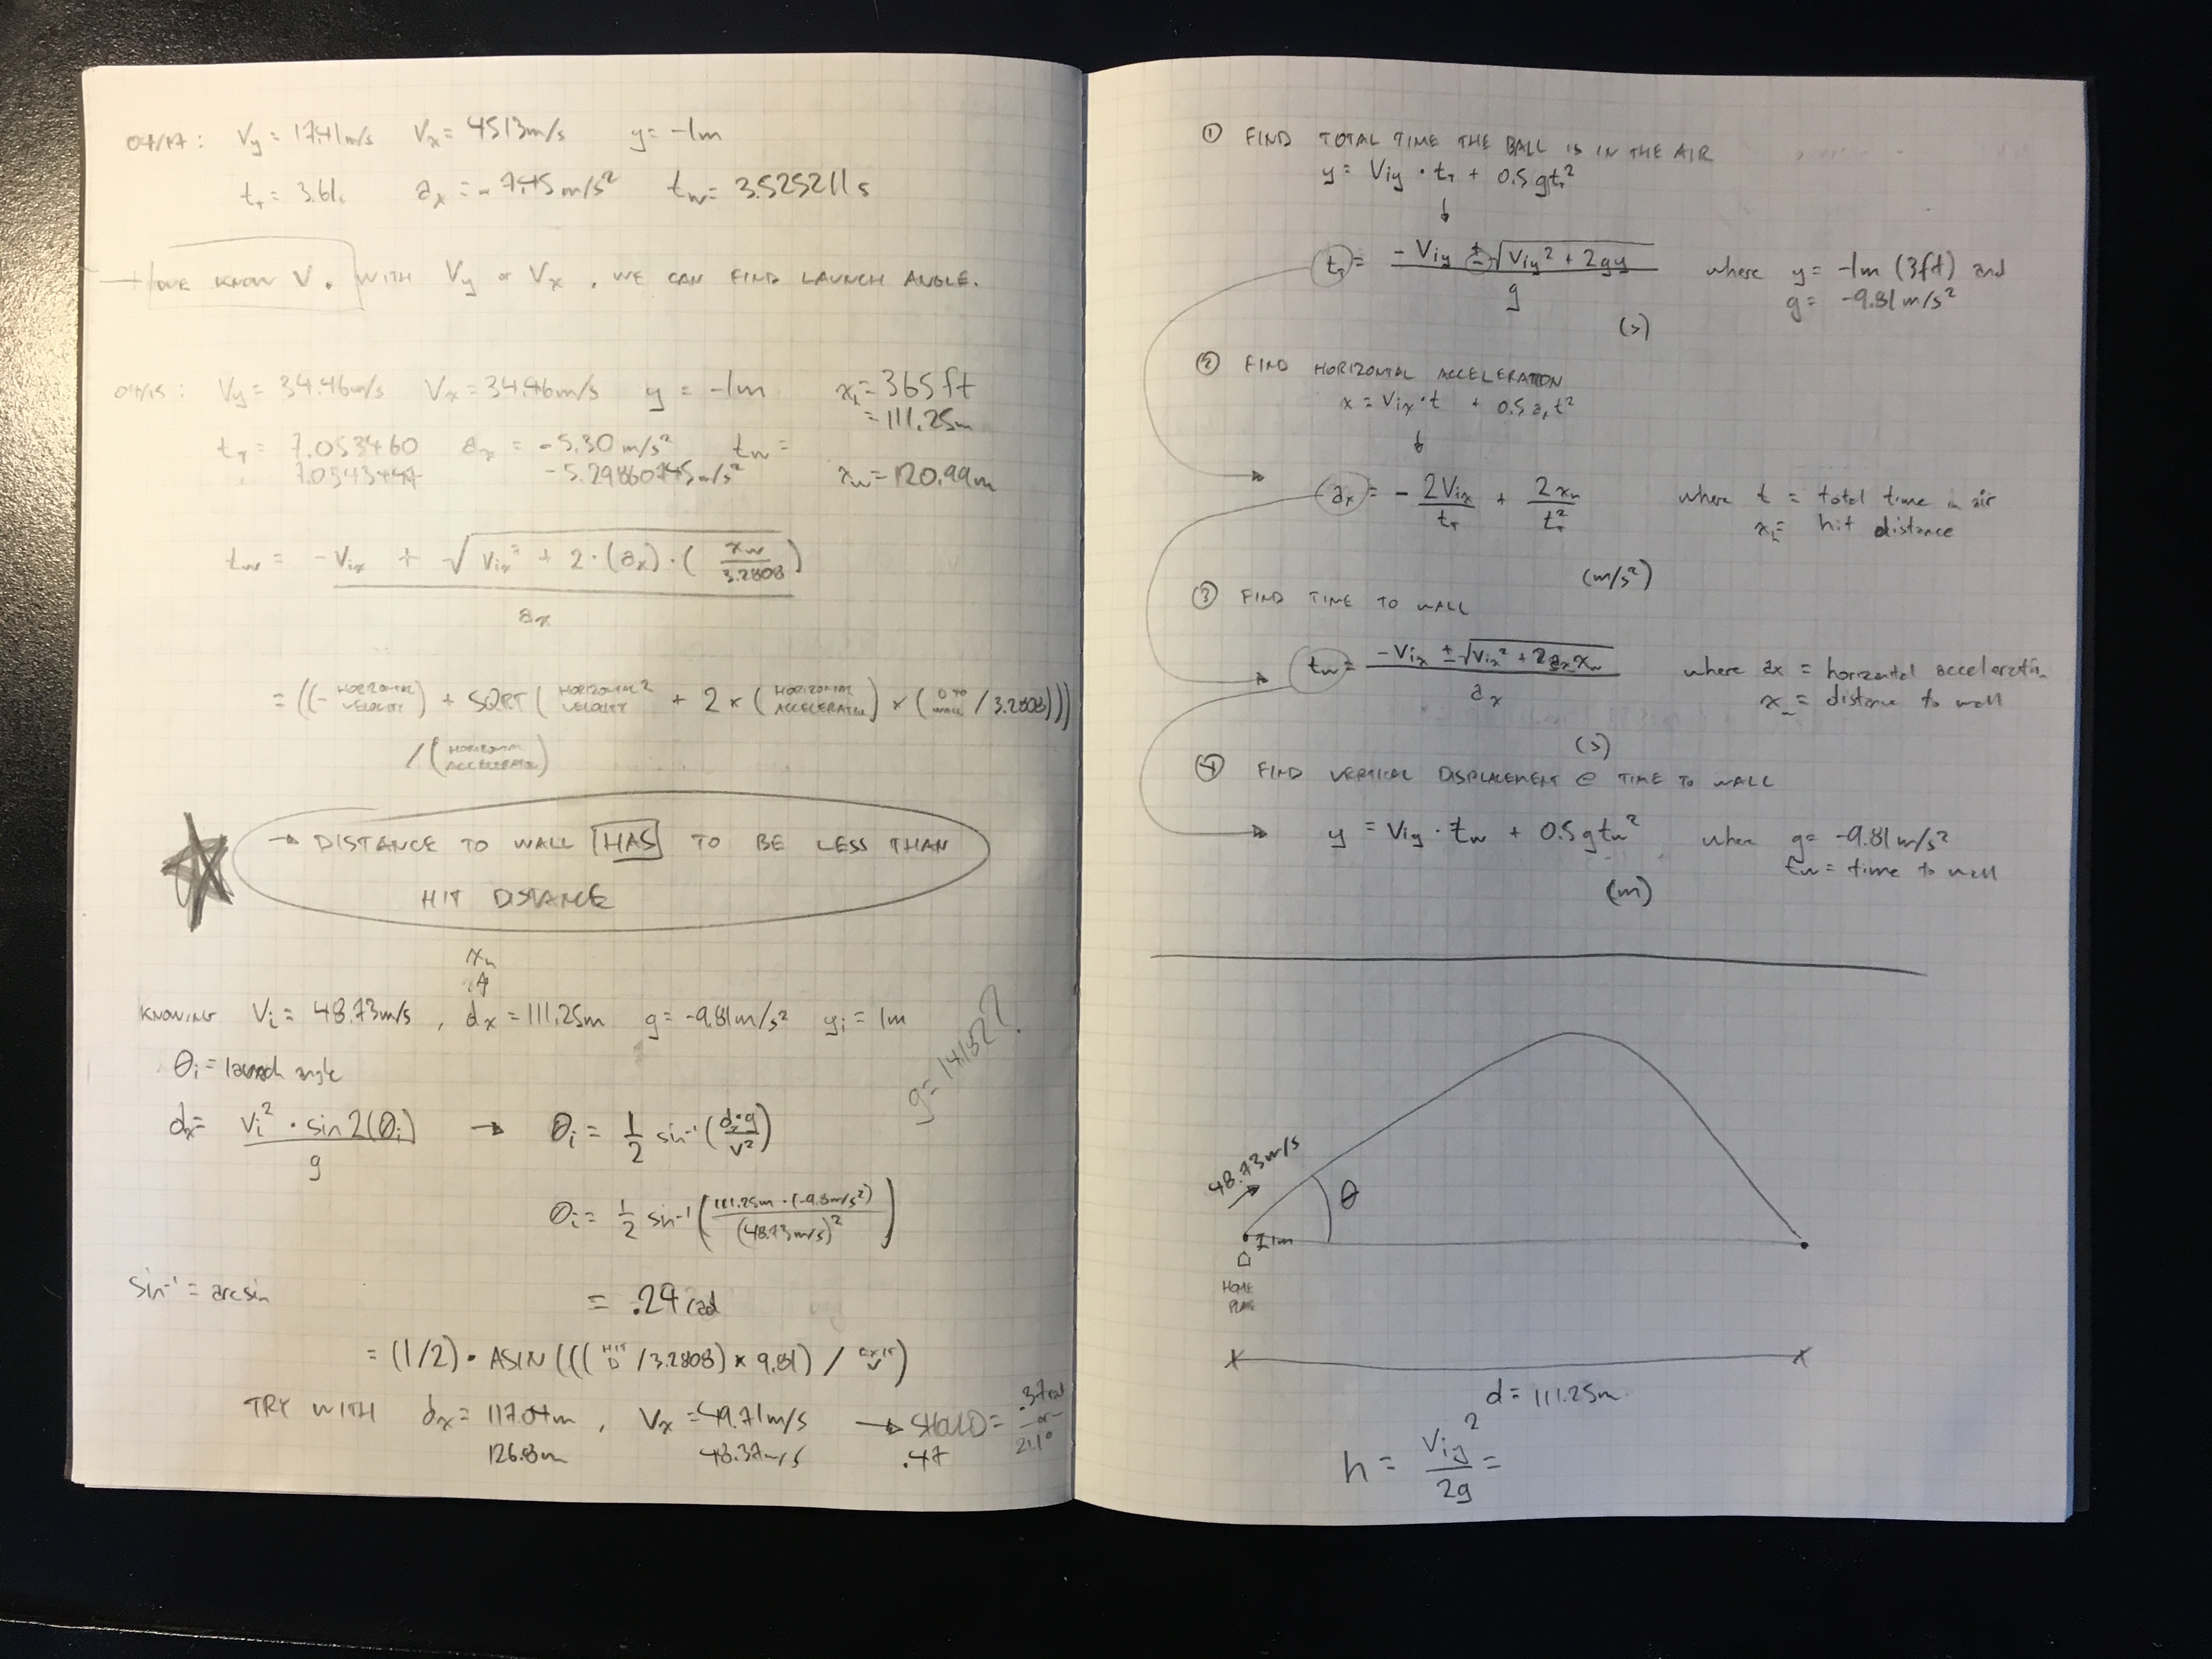 04/17: Vy = 17.41m/s Vx = 45.13m/s y = -1m
tT = 3.61s ax = -7.45 m/s² tw = 3.525211s
→ WE KNOW V. WITH Vy or Vx, WE CAN FIND LAUNCH ANGLE.
04/15: Vy = 34.46m/s Vx = 34.46m/s y = -1m xh = 365ft
= 111.25m
tT = 7.053460 ax = -5.30 m/s² tw =
7.0543444 -5.29860745m/s² xw = 120.99m
tw = (-Vix + √(Vix² + 2·(ax)·(xw/3.2808))) / ax
= ((-HORIZONTAL VELOCITY) + SQRT(HORIZONTAL VELOCITY² + 2 × (HORIZONTAL ACCELERATION) × (D TO WALL / 3.2808)))
/(HORIZONTAL ACCELERATION)
→ DISTANCE TO WALL HAS TO BE LESS THAN
HIT DISTANCE
xh
KNOWING Vi = 48.73m/s, dx = 111.25m g = -9.81m/s² yi = 1m
θi = launch angle
g = 14.182?
dx = Vi² · sin2(θi) / g → θi = 1/2 sin⁻¹(dx·g / v²)
θi = 1/2 sin⁻¹(111.25m·(-9.8m/s²) / (48.73m/s)²)
sin⁻¹ = arcsin
= .24 rad
= (1/2)· ASIN(((HIT D /3.2808) × 9.81) / EXIT V)
TRY WITH dx = 117.04m, Vx = 49.71m/s → SHOULD = .37rad or 21.1°
126.8m 48.37m/s .47
① FIND TOTAL TIME THE BALL IS IN THE AIR
y = Viy · tT + 0.5gtT²
↓
tT = (-Viy ± √(Viy² + 2gy)) / g where y = -1m (3ft) and
g = -9.81 m/s²
(s)
② FIND HORIZONTAL ACCELERATION
x = Vix·t + 0.5axt²
↓
ax = - 2Vix/tT + 2xh/tT² where t = total time in air
xh = hit distance
(m/s²)
③ FIND TIME TO WALL
tw = (-Vix ± √(Vix² + 2axxw)) / ax where ax = horizontal acceleration
xw = distance to wall
(s)
④ FIND VERTICAL DISPLACEMENT @ TIME TO WALL
y = Viy · tw + 0.5gtw² where g = -9.81 m/s²
tw = time to wall
(m)
48.73m/s
θ
1m
HOME
PLATE
d = 111.25m
h = Viy²/2g =